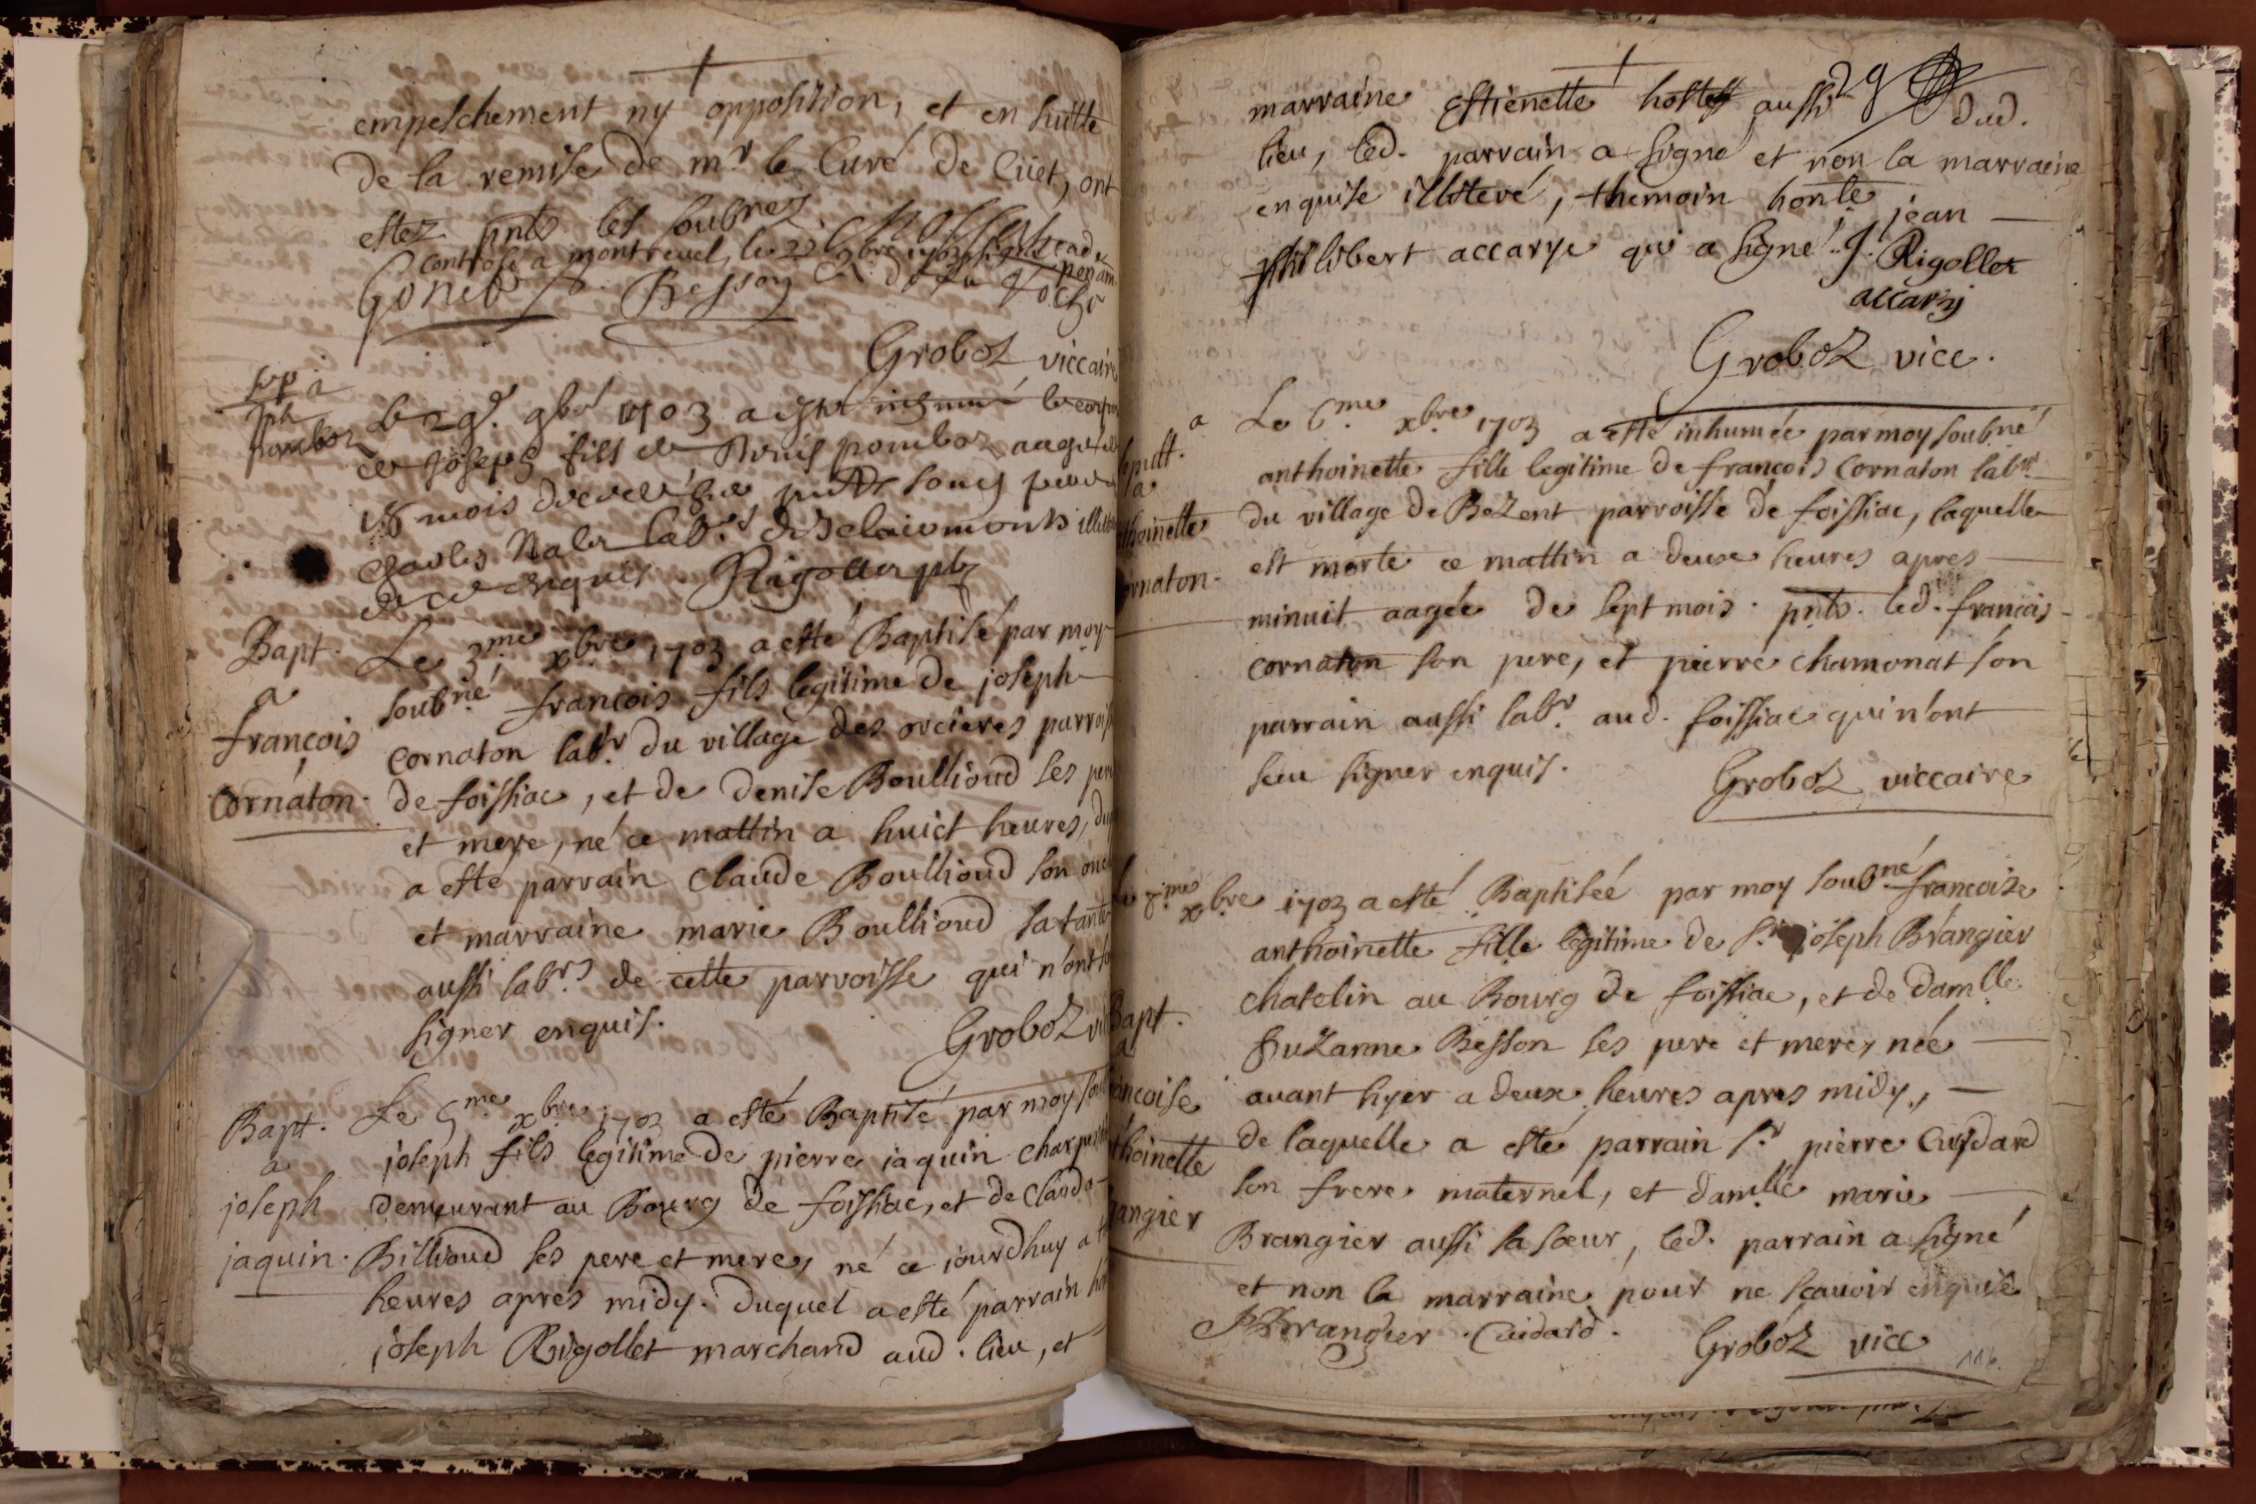 empeschement ny opposition, et en suitte
de la remise de mr le Curé de Cuet, ont
estez pnts les soubnez
Controlé a montrevel, le 9bre 1703
Gonet Besson
Groboz viccaire
Sep a
Jph
pomboz
le 29e 9bre 1703 a esté inhumé le corps
de Joseph fils de Denis pomboz aagé de
mois
Charles labr illit
de ce enquis Rigollet pb
Bapt.
a
françois
Cornaton.
Le 3me xbre 1703 a esté Baptisé par moy
soubné françois fils legitime de joseph
cornaton labr du village des orcieres parroiss
de foissiac, et de denise Boullioud ses pere
et mere, né ce mattin a huict heures, du
a esté parrain Claude Boullioud son onc
et marraine marie Boullioud sa tante
aussi labrs de cette parroisse qui n'ont s
signer enquis.
Groboz vi
Bapt.
a
joseph
jaquin.
Le 5me xbre 1703 a esté Baptisé par moy so
joseph fils legitime de pierre jaquin charpe
demeurant au Bourg de foissiac, et de Clauda
Billioud ses pere et mere, né ce jourdhuy a
heures apres midy. duquel a esté parrain ho
joseph Rigollet marchand aud. lieu, et
29
marraine Estienette hoste aussi dud.
lieu, led. parrain a signé et non la marraine
enquise illiteré, themoin honle jean
philibert accarye qui a signé. J. Rigollet
accary
Groboz vice.
epult.
a
thoinette
ornaton.
Le 6me xbre 1703 a esté inhumée par moy soubné
anthoinette fille legitime de françois Cornaton labr
du village de Bezent parroisse de foissiac, laquelle
est morte ce mattin a deux heures apres
minuit aagée de sept mois. pnts. led. francois
cornaton son pere, et pierre chamonat son
parrain aussi labr aud. foissiac qui n'ont
sceu signer enquis.
Groboz viccaire
Bapt.
a
ancoise
thoinette
rangier
Le 8me xbre 1703 a esté Baptiseé par moy soubné francoise
anthoinette fille legitime de Sr joseph Brangier
chatelin au Bourg de foissiac, et de damlle
Suzanne Besson ses pere et mere, née
auant hyer a deux heures apres midy,
de laquelle a esté parrain Sr pierre Cuydard
son frere maternel, et damlle marie
Brangier aussi sa sœur, led. parrain a signé
et non la marraine pour ne scauoir enquise
Brangier Cuidard.
Groboz vice
116.